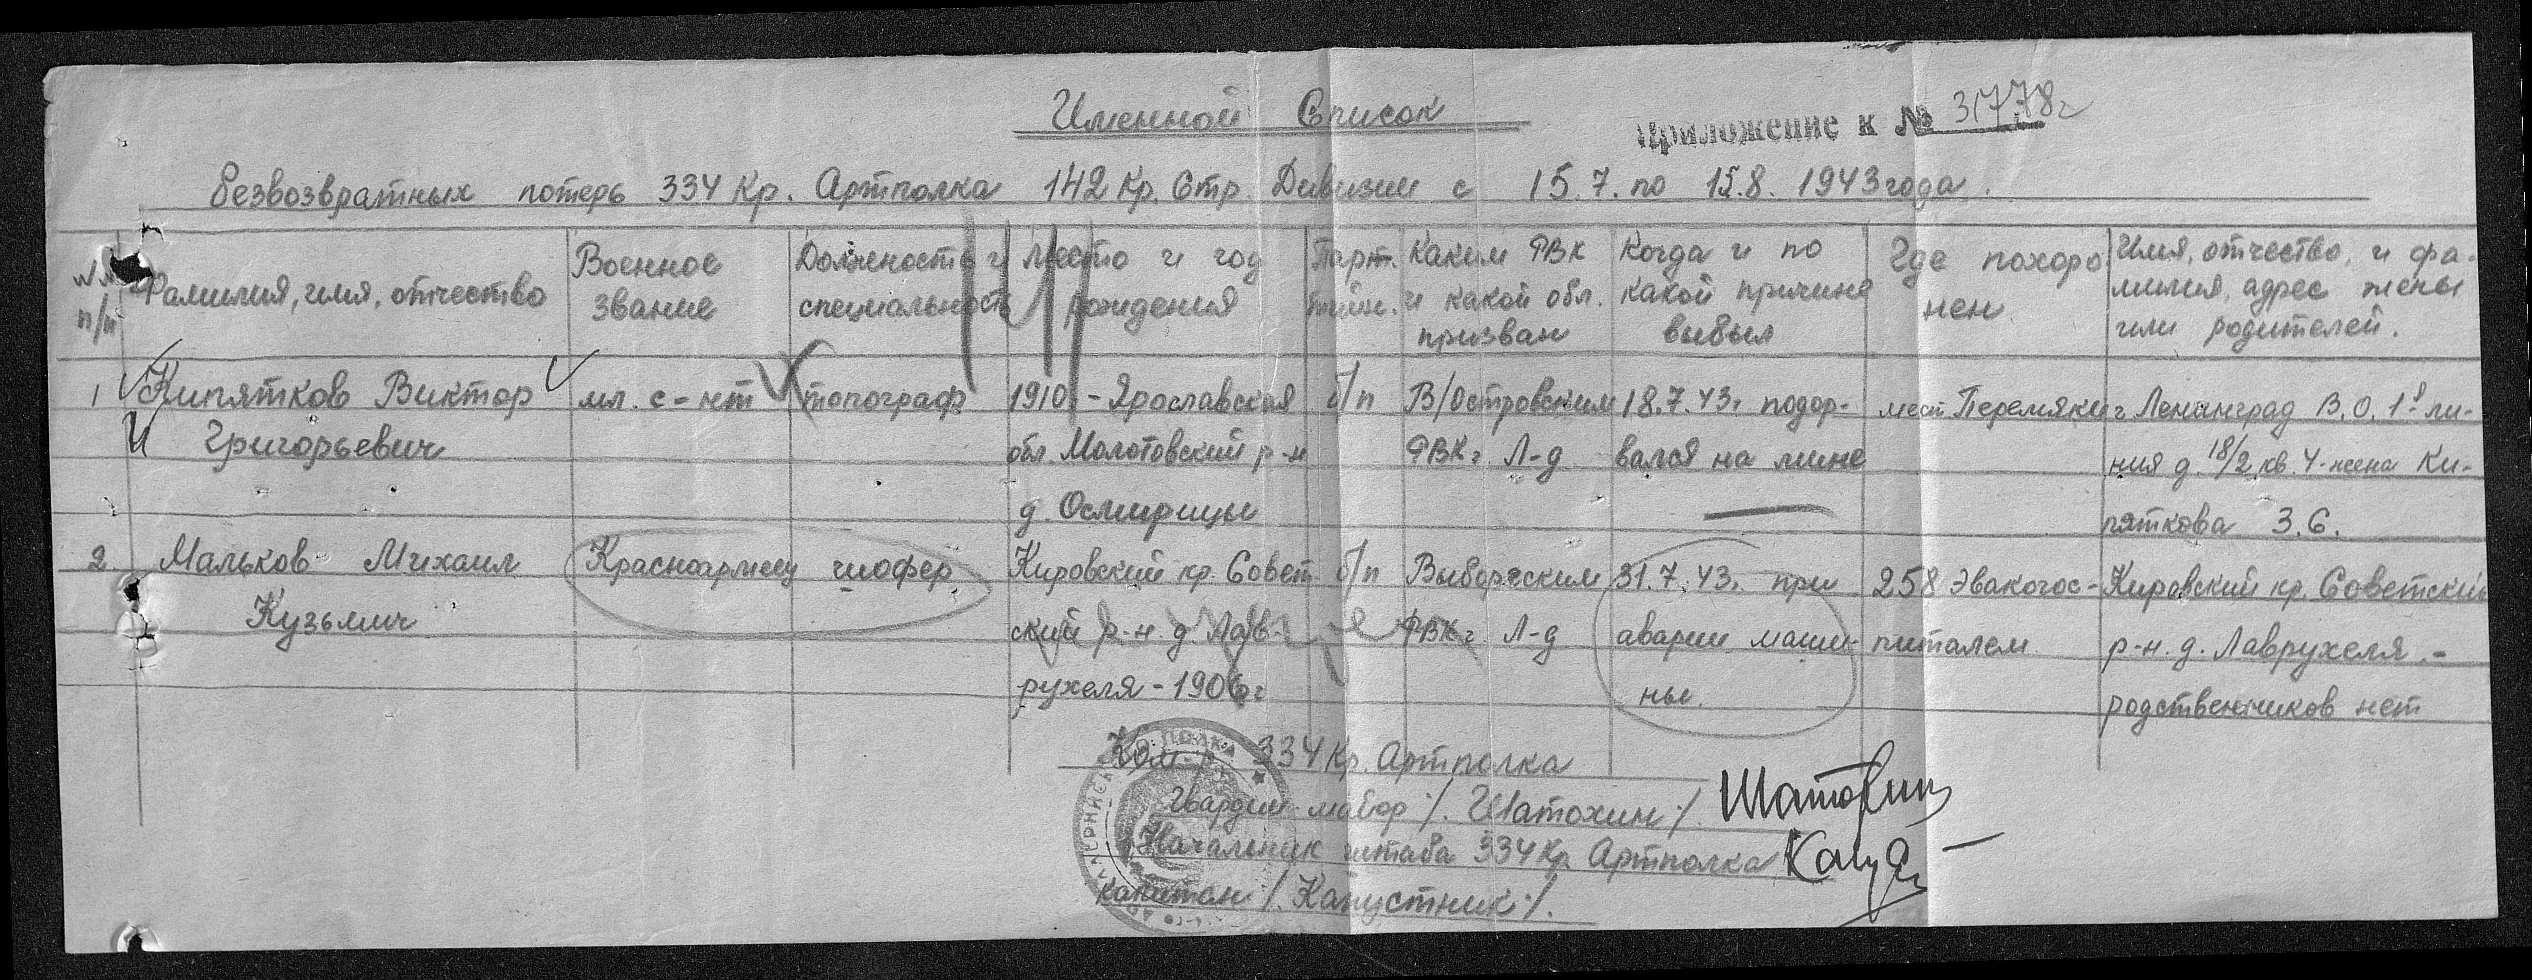 Именной Список
Приложение к № 31778с
безвозвратных потерь 334 Кр. Артполка 142 Кр. Стр. Дивизии с 15.7. по 15.8. 1943 года.
№№ п/п
Фамилия, имя, отчество
Военное
звание
Должность и
специальность
Место и год
рождения
Парт.
Каким РВК
и какой обл.
призван
Когда и по
какой причине
выбыл
Где похоро
нен
Имя, отчество, и фа-
милия, адрес жены
или родителей.
1 Кипятков Виктор
Григорьевич
мл. с-нт
топограф
1910 - Ярославская
обл. Молотовский р-н
д. Осмирицы
б/п
В/Островским
РВК г. Л-д
18.7.43г. подор-
вался на мине
мест. Перемяки
г. Ленинград В.О. 1-я ли-
ния д. 18/2 кв. 4 - жена Ки-
пяткова З.Г.
2. Мальков Михаил
Кузьмич
Красноармеец
шофер
Кировский кр. Совет
ский р-н. д. Лав-
рухеля - 1906г
б/п
Выборгским
РВК г. Л-д
31.7.43г. при
аварии маши-
ны.
258 эвакогос-
питалем
Кировский кр. Советский
р-н. д. Лаврухеля. -
родственников нет
Ком-р 334 Кр. Артполка
Гвардии-майор /. Шатохин /.
Начальник штаба 334 Кр Артполка
капитан /. Капустник /.